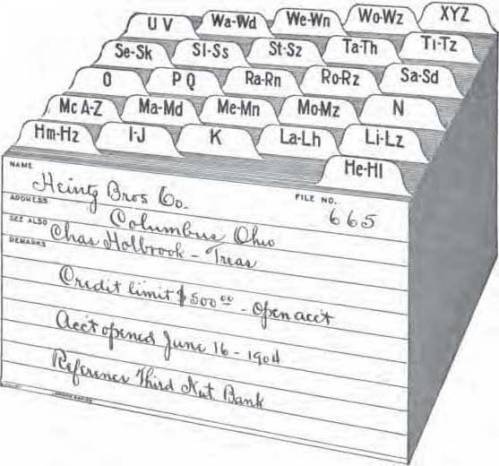 U V Wa-Wd We-Wn Wo-Wz XYZ
Se-Sk Sl-Ss St-Sz Ta-Th Ti-Tz
O P Q Ra-Rn Ro-Rz Sa-Sd
Mc A-Z Ma-Md Me-Mn Mo-Mz N
Hm-Hz I-J K La-Lh Li-Lz
He-Hl
NAME Heintz Bros Co. FILE NO. 665
ADDRESS Columbus Ohio
SEE ALSO Chas Holbrook - Treas
REMARKS
Credit limit $500.00 - Open acct
Acc't opened June 16 - 1904
Reference Third Nat Bank